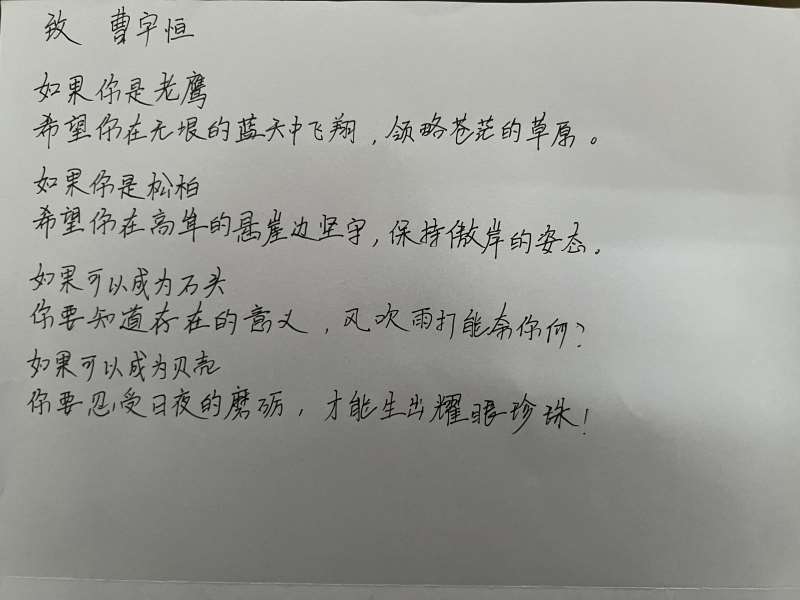 致 曹宇恒
如果你是老鹰
希望你在无垠的蓝天中飞翔,领略苍茫的草原。
如果你是松柏
希望你在高耸的悬崖边坚守,保持傲岸的姿态。
如果可以成为石头
你要知道存在的意义,风吹雨打能奈你何?
如果可以成为贝壳
你要忍受日夜的磨砺,才能生出耀眼珍珠!